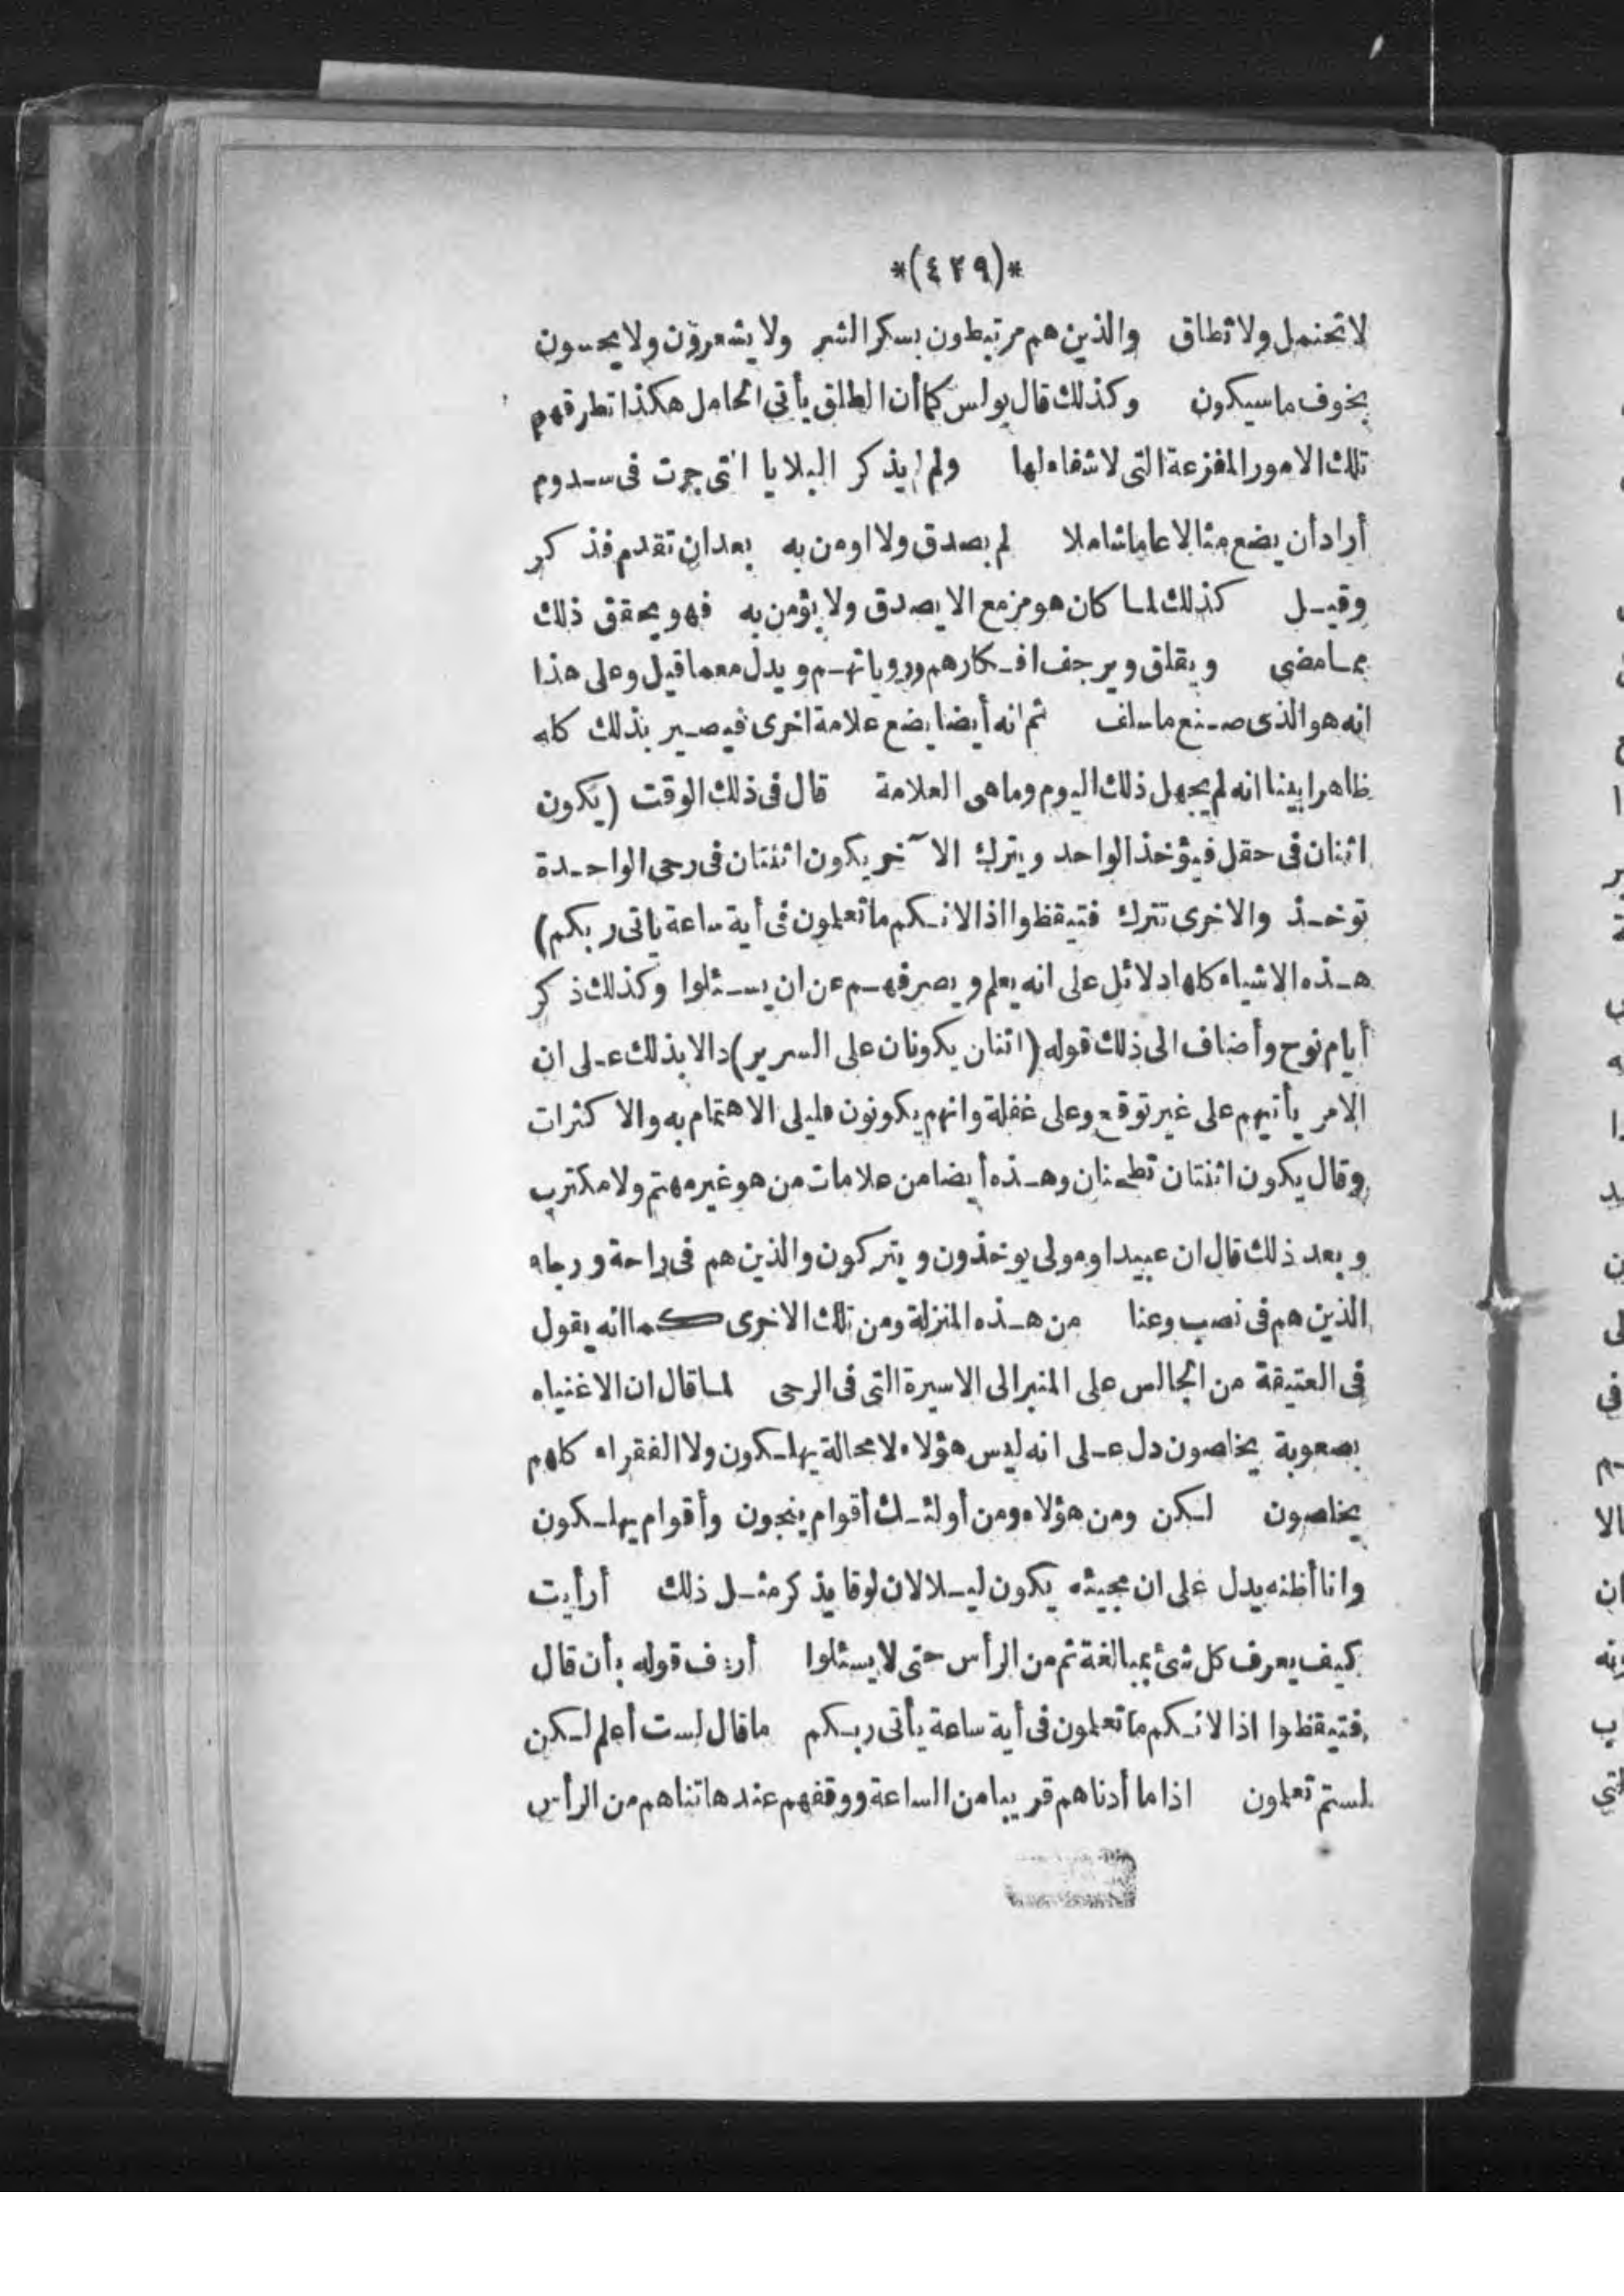 *(٤٣٩)*
لاتحتمل ولاتطاق والذين هم مرتبطون بسكرالشر ولايشعرون ولايحسون
بخوف ماسيكون وكذلك قال بولس كماأن الطلق يأتى الحامل هكذا تطرقهم
تلك الامور المفزعة التى لاشفاء لها ولم يذكر البلايا التى جرت فى سدوم
أراد أن يضع مثالا عاما شاملا لم يصدق ولا اومن به بعدان تقدم فذكر
وقيل كذلك لما كان هو مزمع الا يصدق ولا يؤمن به فهو يحقق ذلك
بمامضى ويقلق ويرجف افكارهم ورواياتهم ويدل معما قيل وعلى هذا
انه هو الذى صنع ماسلف ثم انه أيضا يضع علامة اخرى فيصير بذلك كله
ظاهرا بينا انه لم يجهل ذلك اليوم وماهى العلامة قال فى ذلك الوقت (يكون
اثنان فى حقل فيؤخذ الواحد ويترك الآخر يكون اثنتان فى رحى الواحدة
توخذ والاخرى تترك فتيقظوا اذا لانكم ماتعلمون فى أية ساعة ياتى ربكم)
هذه الاشياء كلها دلائل على انه يعلم ويصرفهم عن ان يسئلوا وكذلك ذكر
أيام نوح وأضاف الى ذلك قوله (اثنان يكونان على السرير) دالا بذلك على ان
الامر يأتيهم على غير توقع وعلى غفلة وانهم يكونون قليلى الاهتمام به والاكتراث
وقال يكون اثنتان تطحنان وهذه أيضا من علامات من هو غير مهتم ولا مكترب
وبعد ذلك قال ان عبيدا ومولى يوخذون ويتركون والذين هم فى راحة ورجاء
الذين هم فى نصب وعنا من هذه المنزلة ومن تلك الاخرى كماانه يقول
فى العتيقة من الجالس على المنبر الى الاسيرة التى فى الرحى لما قال ان الاغنياء
بصعوبة يخلصون دل على انه ليس هؤلاء لا محالة يهلكون ولا الفقراء كلهم
يخلصون لكن ومن هؤلاء ومن أولئك أقوام ينجون وأقوام يهلكون
وانا أظنه يدل على ان مجيئه يكون ليلا لان لوقا يذكر مثل ذلك أرأيت
كيف يعرف كل شئ بمبالغة ثم من الرأس حتى لا يسئلوا أردف قوله بأن قال
فتيقظوا اذا لانكم ماتعلمون فى أية ساعة يأتى ربكم ماقال لست أعلم لكن
لستم تعلمون اذا ما أدناهم قريبا من الساعة ووقفهم عندها ثناهم من الرأس